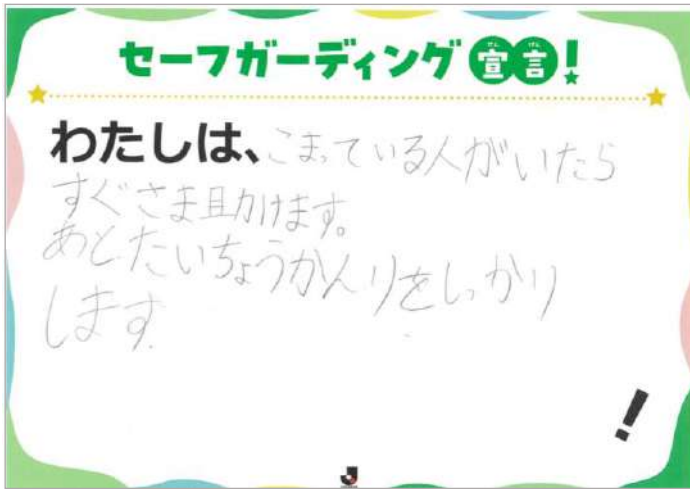 セーフガーディング宣言!
わたしは、こまっている人がいたら
すぐさま助けます。
あとたいちょうかんりをしっかり
します
!